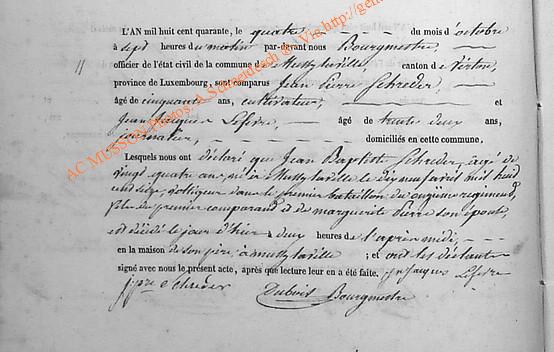 L'AN mil huit cent quarante, le quatre du mois d'octobre
à sept heures du matin par-devant nous Bourgmestre,
11 officier de l'état civil de la commune de Mussy laville canton de Virton,
province de Luxembourg, sont comparus Jean Pierre Schreder,
âgé de cinquante ans, cultivateur, et
Jean Jacques Lefevre, âgé de trente deux ans,
journalier, domiciliés en cette commune,
Lesquels nous ont déclaré que Jean Baptist Schreder, agé de
vingt quatre ans, né à Mussy laville le dix neuf avril mil huit
cent seize, dans le premier bataillon du onzieme regiment,
fils du premier comparant et de marguerite son épouse
est décédé le jour d'hier à deux heures de l'après midi,
en la maison de son père, à mussy laville ; et ont les déclarants
signé avec nous le présent acte, après que lecture leur en a été faite. jn jacques Lefevre
j pre Schreder Dubois Bourgmestre
AC MUSSON Photos: A Schneidesch @ Vig http://gen